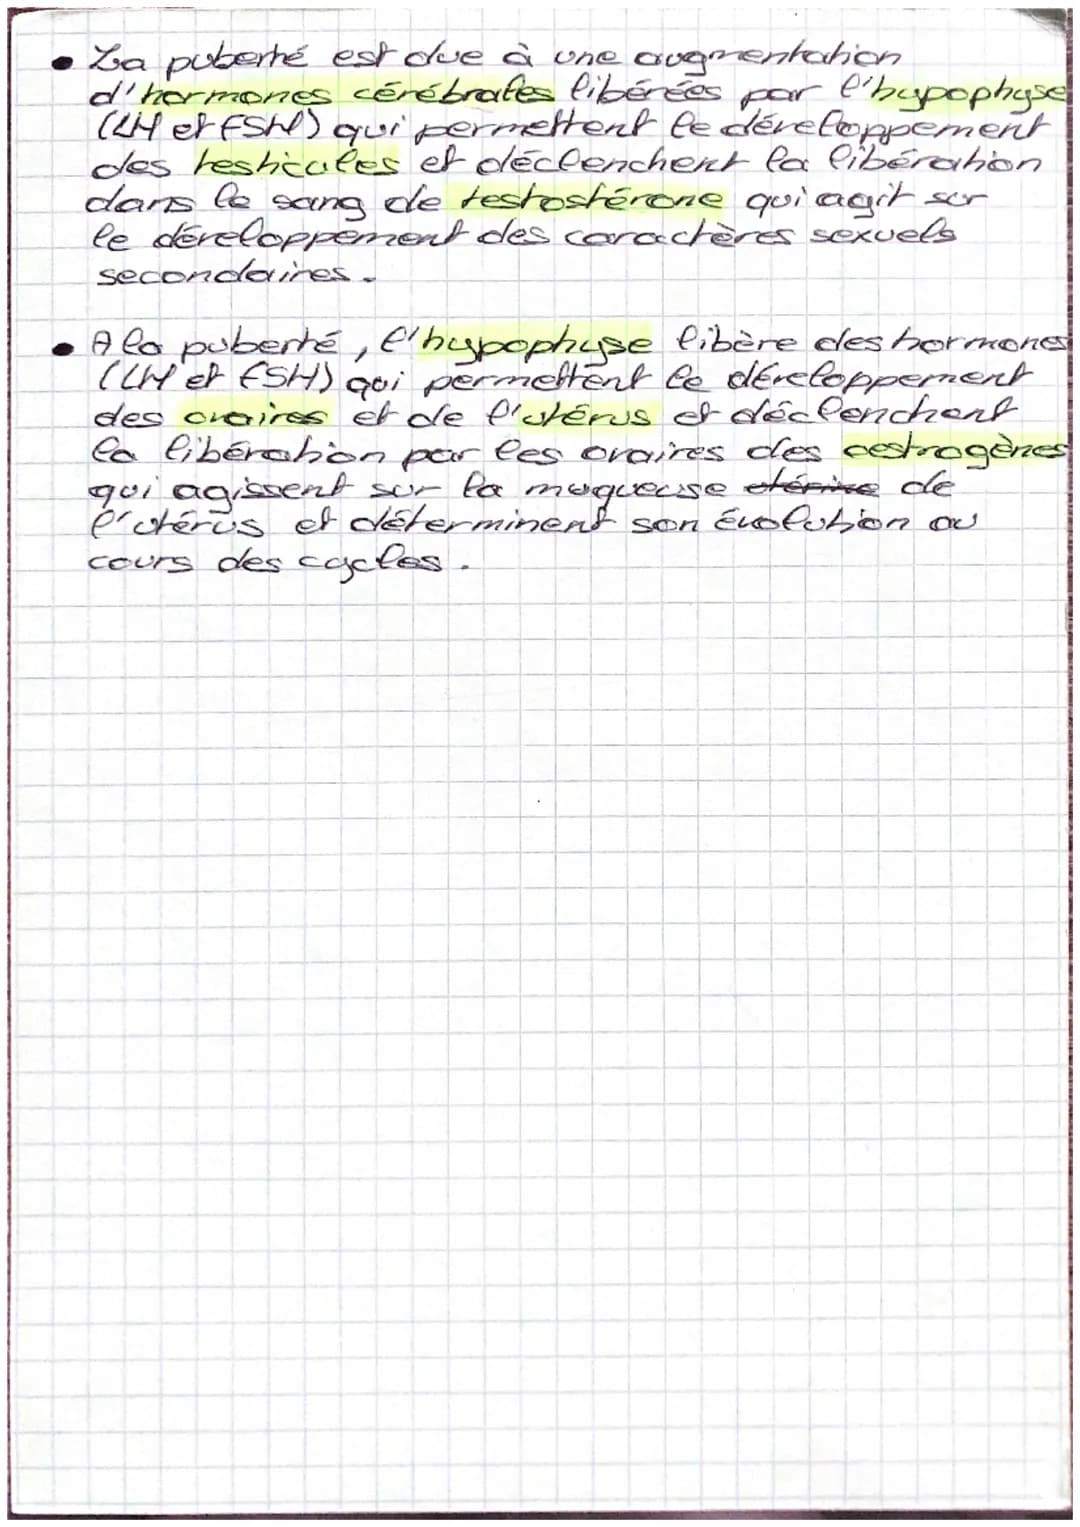 • La puberté est due à une augmentation
d'hormones cérébrales libérées par l'hypophyse
(LH et FSH) qui permettent le développement
des testicules et déclenchent la libération
dans le sang de testostérone qui agit sur
le développement des caractères sexuels
secondaires.
• A la puberté, l'hypophyse libère des hormones
(LH et FSH) qui permettent le développement
des ovaires et de l'utérus et déclenchent
la libération par les ovaires des oestrogènes
qui agissent sur la muqueuse utérine de
l'utérus et déterminent son évolution au
cours des cycles.